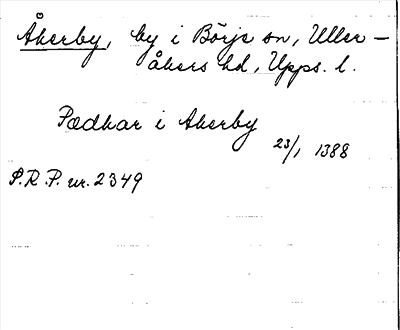 Åkerby, by i Börje sn, Uller-
åkers hd, Upps. l.
Pædhar i Akerby
23/1 1388
S.R.P. nr. 2349